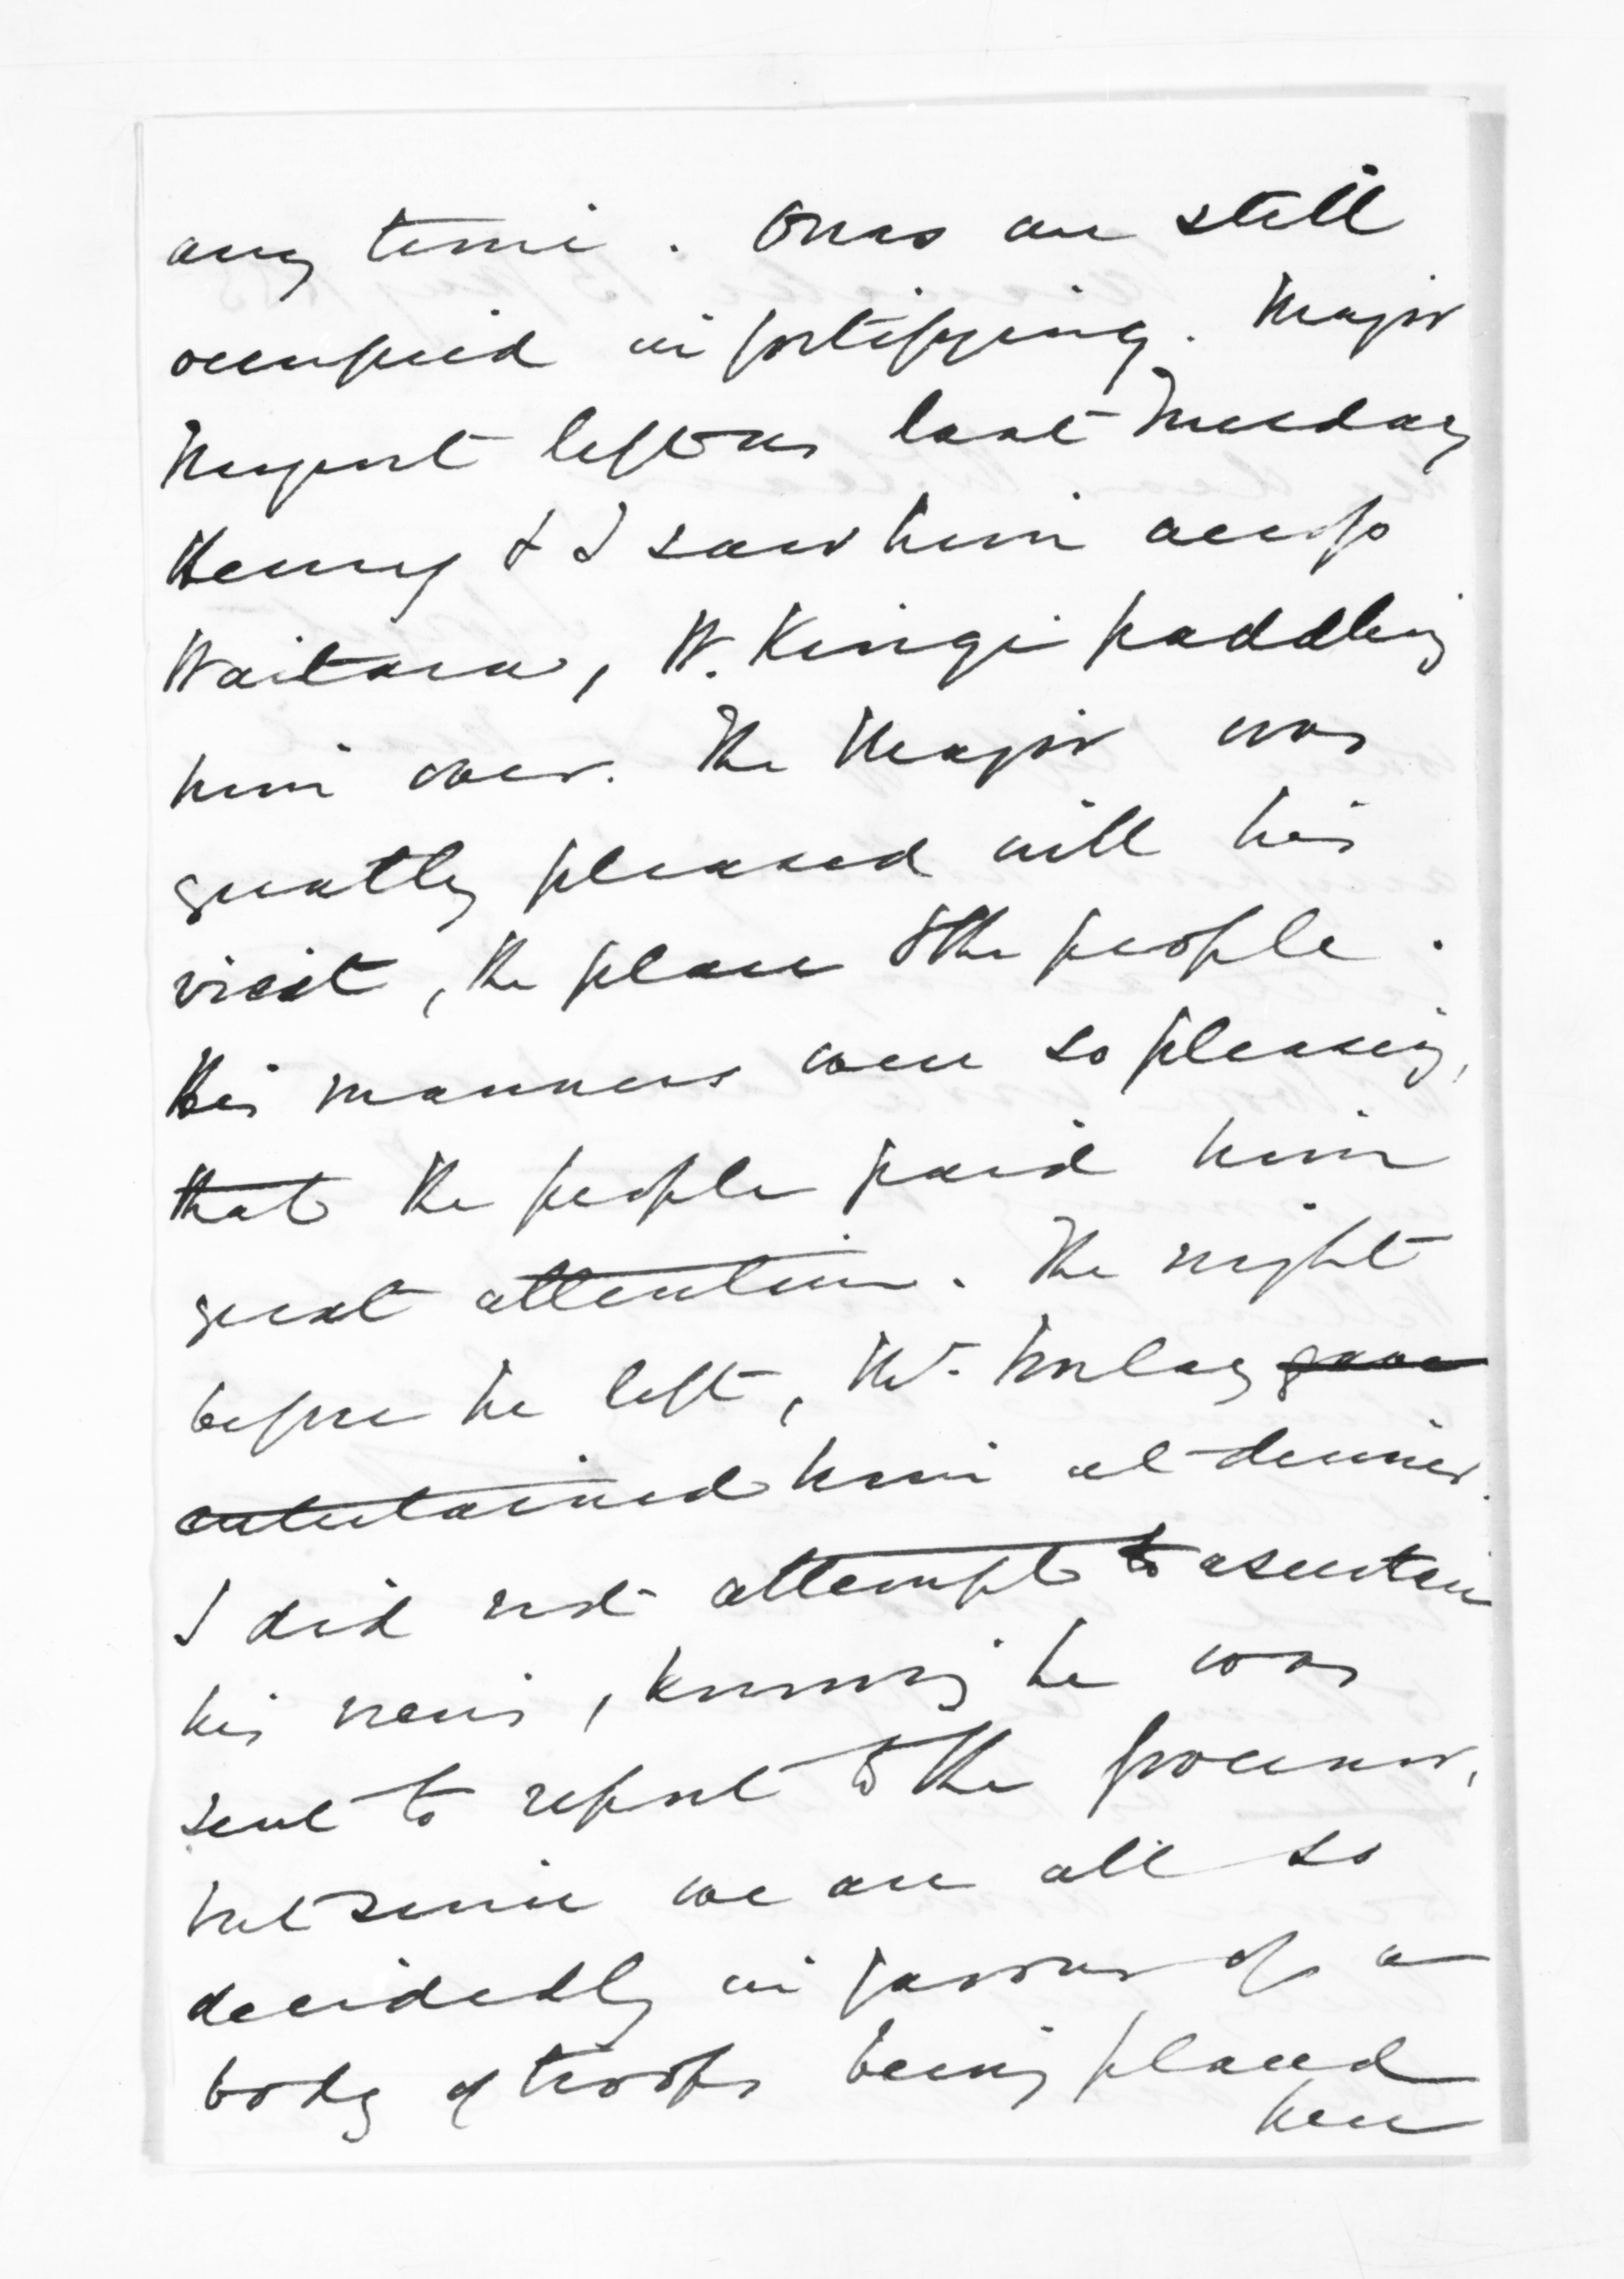 any time. Ones are still
occupied in fortifying. Major
Nugent left us last Tuesday
Henry & I saw him across
Waitara, W. Kingi paddling
him over. The Major was
greatly pleased with his
visit, the place & the people.
His manners were so pleasing,
that the people paid him
great attention. The night
before he left, Mr. Turton gave
entertained him at dinner.
I did not attempt to ascertain
his views, knowing he was
sent to report to the Governor,
but since we are all so
decidedly in favour of a
body of troops being placed
here